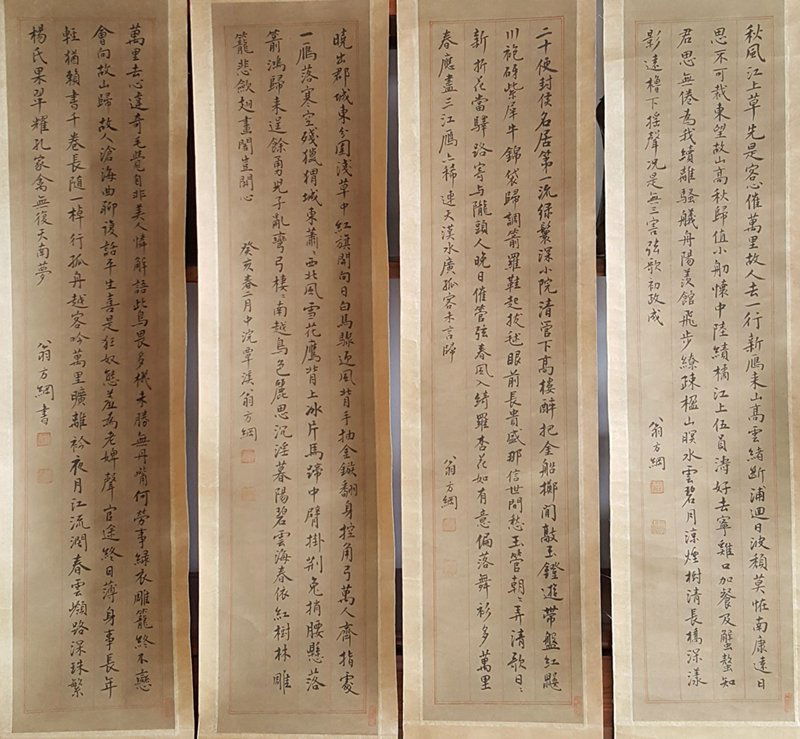 秋風江上草先是客心催萬里故人去一行新鴈来山高雲緒断浦迴日波頹莫怪南康遠日
思不可裁東望故山高秋歸值小舠懷中陸績橘江上伍員濤好去寧雞口加餐及蟹螯知
君思無倦為我續離騷艤舟陽羨館飛步繚疎楹山暝水雲碧月涼煙樹清長橋深漾
影遠櫓下搖聲况是無三害弦歌初政成
翁方綱
二十便封侯名居第一流綠鬟深小院清管下高樓醉把金船擲閒敲玉鐙遊帶盤紅鼹
川袍砑紫犀牛錦袋歸調箭羅鞋起拔毬眼前長貴盛那信世間愁玉管朝々弄清歌日々
新折花當驛路寄与隴頭人晚日催管弦春風入綺羅杏花如有意偏落舞衫多萬里
春應盡三江鴈亦稀連天漢水廣孤客未言歸
翁方綱
曉出郡城東分圍淺草中紅旗開向日白馬驟迎風背手抽金鏃翻身控角弓萬人齊指處
一鴈落寒空殘獵渭城東蕭々西北風雪花鷹背上冰片馬蹄中臂掛荊兔捎腰懸落
箭鴻歸来逞餘勇兒子亂彎弓棲々南越鳥色麗思沉淫暮隔碧雲海春依紅樹林雕
籠悲斂翅畫閣豈關心
癸亥春二月中浣覃溪翁方綱
萬里去心違奇毛覺自非美人憐解語此鳥畏多機未勝無丹嘴何勞事綠衣雕籠終不戀
會向故山歸故人滄海曲聊復話平生喜是狂奴態羞為老婢聲官途終日薄身事長年
輕猶賴書千卷長隨一棹行孤舟越客吟萬里曠離衿夜月江流濶春雲嶺路深珠繁
楊氏果翠耀孔家禽無復天南夢
翁方綱書